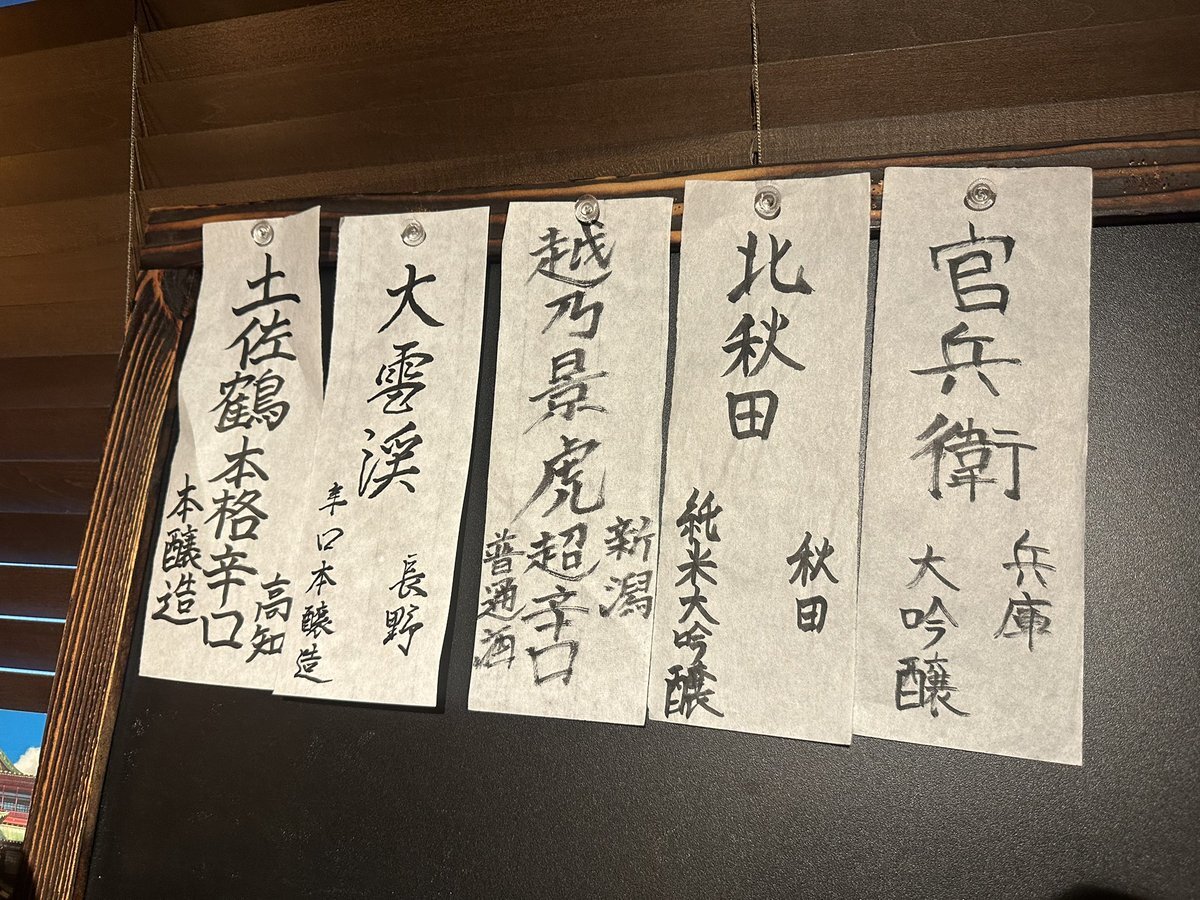 官兵衛
兵庫
大吟醸
北秋田
秋田
純米大吟醸
越乃景虎超辛口
新潟
普通酒
大雪渓
長野
辛口本醸造
土佐鶴本格辛口
高知
本醸造